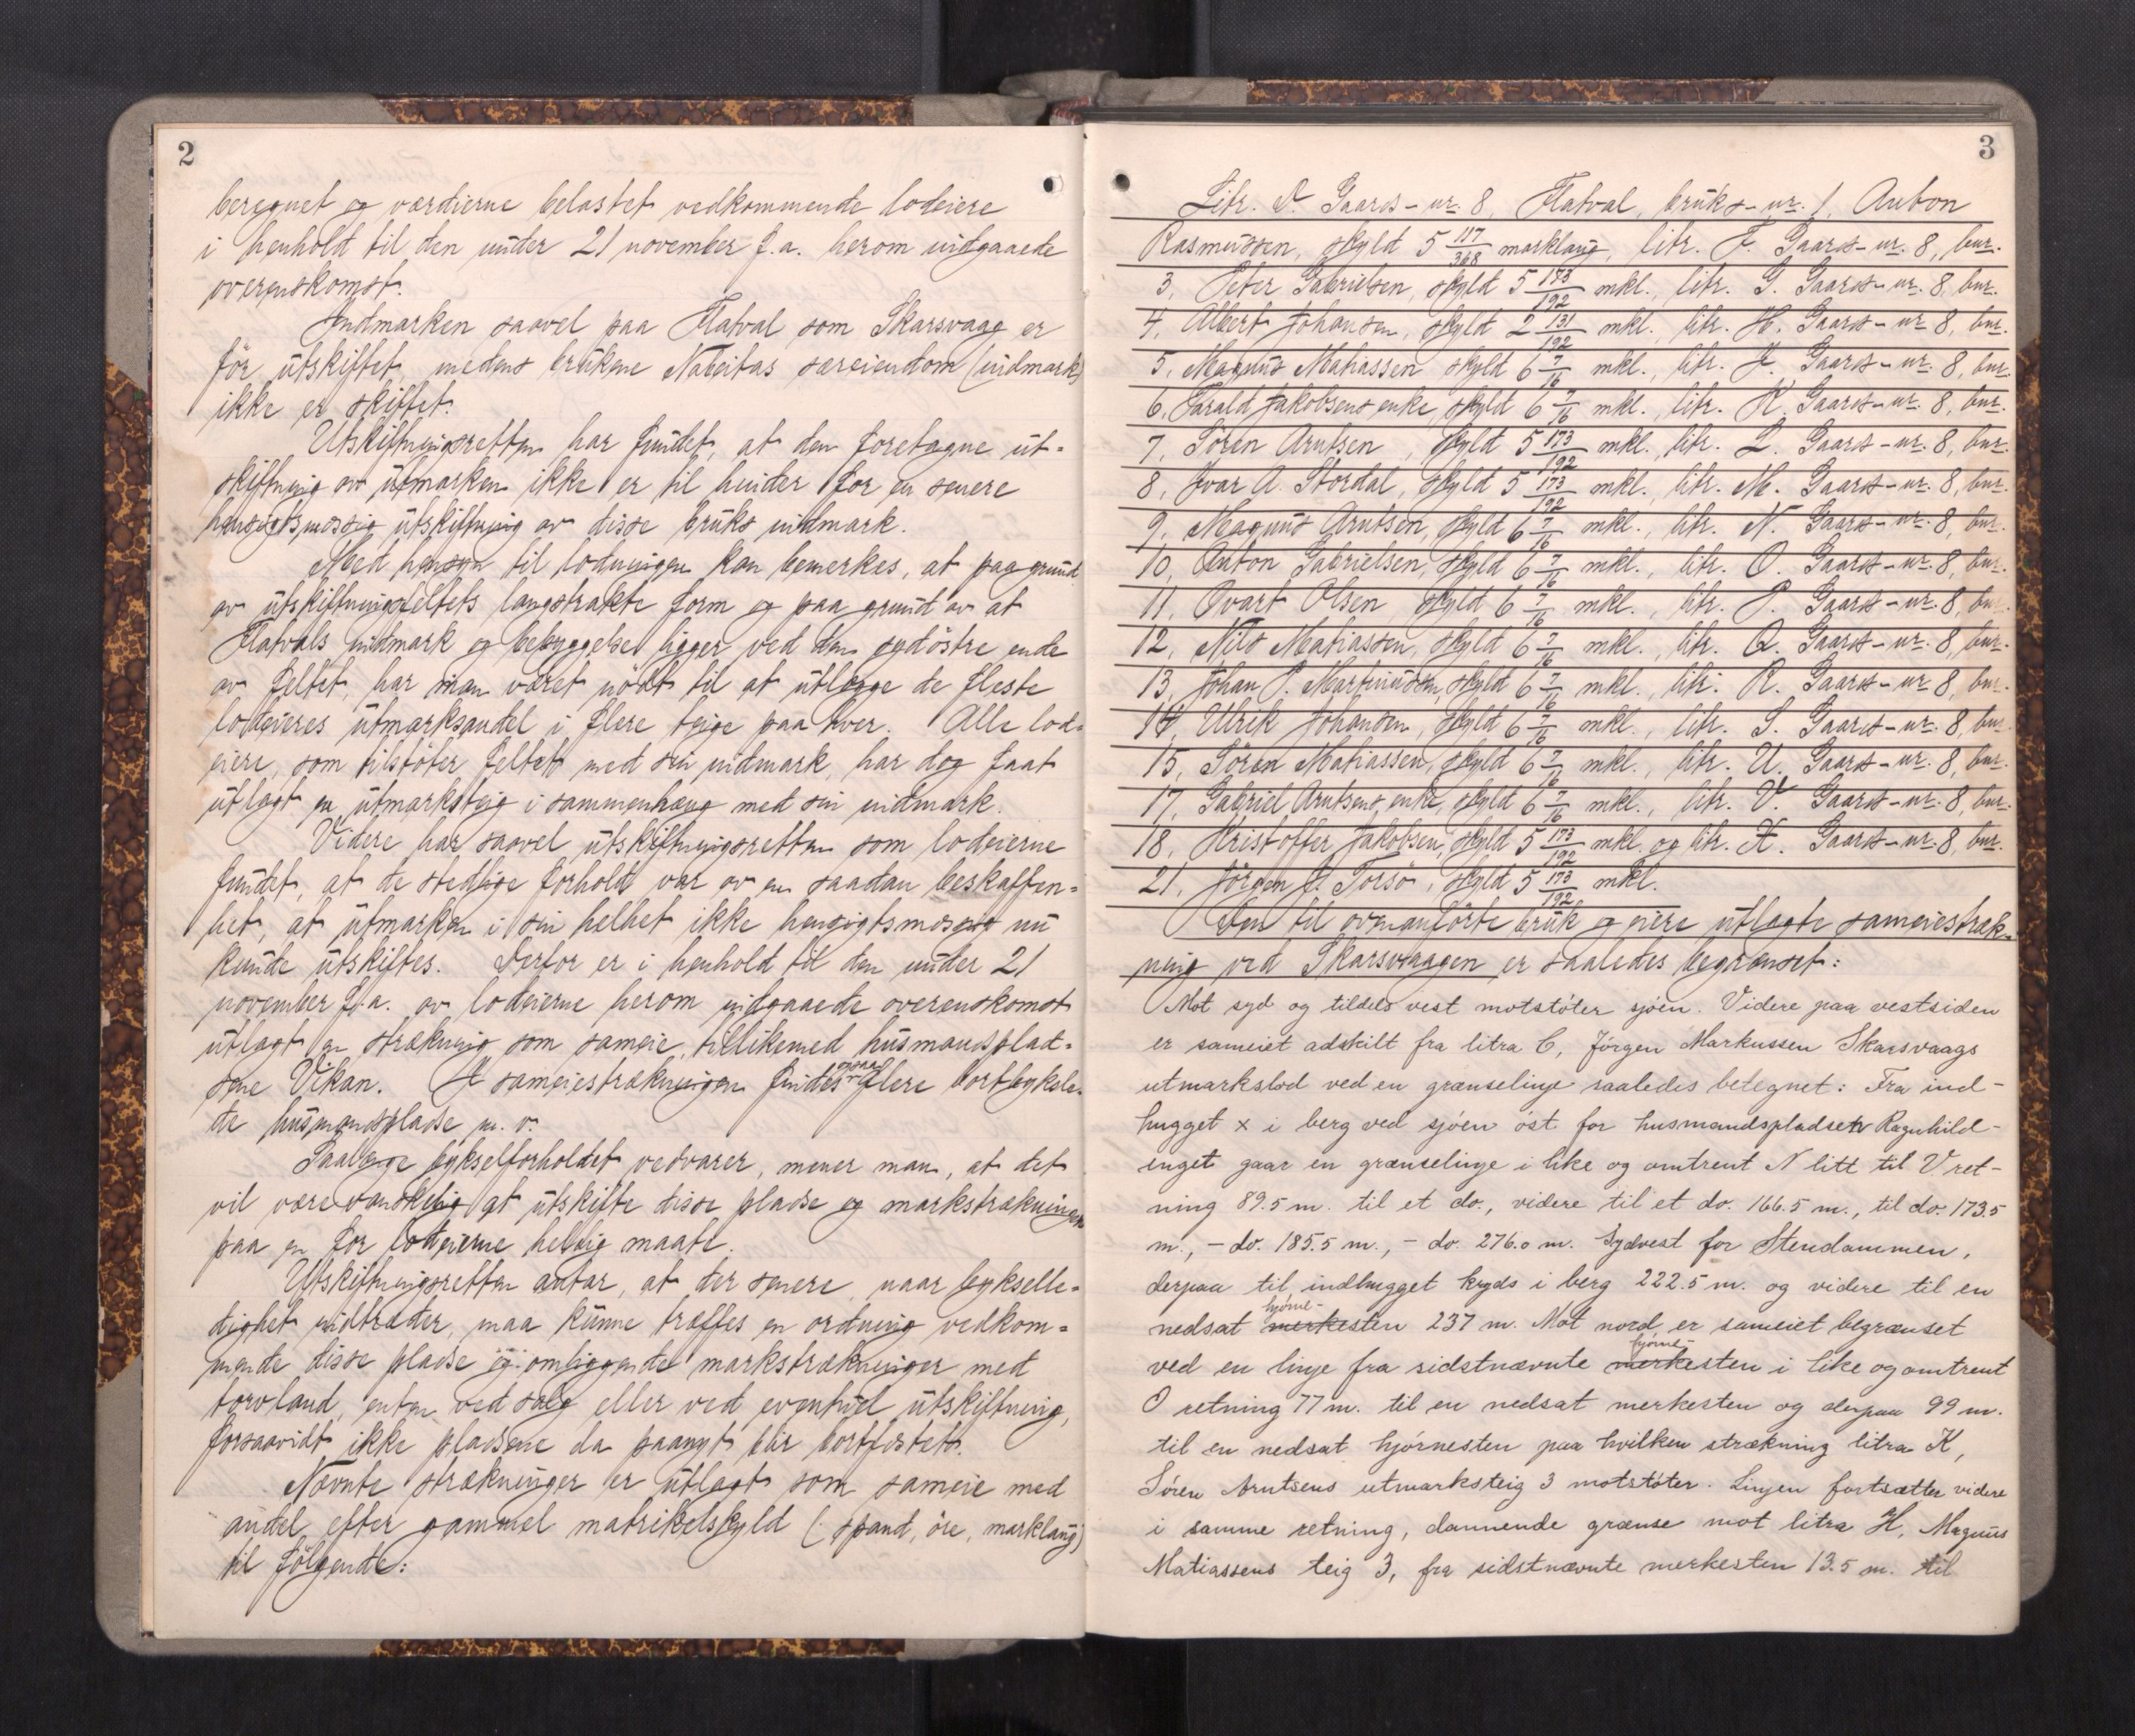 2
beregnet og værdierne belastet vedkommende lodeiere
i henhold til den under 21 november f.a. herom indgaaede
overenskomst.
Indmarken saavel paa Flatval som Skarsvaag er
før utskiftet, medens brukene Nabeitas særeiendom (indmark)
ikke er skiftet.
Utskiftningsretten har fundet, at den foretagne ut-
skiftning av utmarken ikke er til hinder for en senere
hensigtsmæssig utskiftning av disse bruks indmark.
Med hensyn til lodningen kan bemerkes, at paa grund
av utskiftningsfeltets langstrakte form og paa grund av at
Flatvals indmark og bebyggelse ligger ved den sydöstre ende
av feltet, har man været nödt til at utlægge de fleste
lodeieres utmarksandel i flere teige paa hver. Alle lod-
eiere, som tilstöter feltet med sin indmark, har dog faat
utlagt en utmarksteig i sammenhæng med sin indmark.
Videre har saavel utskiftningsretten som lodeierne
fundet, at de stedlige forhold var av en saadan beskaffen-
het, at utmarken i sin helhet ikke hensigtsmæssig nu
kunde utskiftes. Derfor er i henhold til den under 21
november f.a. av lodeierne herom indgaaede overenskomst
utlagt en strækning som sameie, tillikemed husmandsplad-
sene Vikan. I sameiestrækningen findes ogsaa flere bortbyksle-
de husmandspladse m. v.
Saalænge bykselforholdet vedvarer, mener man, at det
vil være vanskelig at utskifte disse pladse og markstrækninger
paa en for lodeierne heldig maate.
Utskiftningsretten antar, at der senere, naar bykselle-
dighet indtræder, maa kunne træffes en ordning vedkom-
mende disse pladse og omliggende markstrækninger med
torvland, enten ved salg eller ved eventuel utskiftning,
forsaavidt ikke pladsene da paanyt blir bortfæstet.
Nævnte strækninger er utlagt som sameie med
andel efter gammel matrikelskyld (spand, öre, marklaug)
til fölgende:
3
Litr. D. Gaards-nr. 8, Flatval, bruks-nr. 1, Anton
Rasmussen, skyld 5 117/368 marklaug, litr. F. Gaards-nr. 8, bnr.
3, Peter Gabrielsen, skyld 5 173/192 mkl., litr. G. Gaards-nr. 8, bnr.
4, Albert Johansen, skyld 2 131/192 mkl., litr. H. Gaards-nr 8, bnr.
5, Magnus Matiassen skyld 6 7/16 mkl., litr. J. Gaards-nr. 8, bnr.
6, Harald Jakobsens enke, skyld 6 7/16 mkl., litr. K. Gaards-nr. 8, bnr.
7, Sören Arntsen, skyld 5 173/192 mkl., litr. L. Gaards-nr. 8, bnr.
8, Ivar A. Stordal, skyld 5 173/192 mkl., litr. M. Gaards-nr. 8, bnr.
9, Magnus Arntsen, skyld 6 7/16 mkl., litr. N. Gaards-nr. 8, bnr.
10, Anton Gabrielsen, skyld 6 7/16 mkl., litr. O. Gaards-nr. 8, bnr.
11, Ovart Olsen, skyld 6 7/16 mkl., litr. P. Gaards-nr. 8, bnr.
12, Nils Matiassen, skyld 6 7/16 mkl., litr. Q. Gaards-nr. 8, bnr.
13, Johan P. Martinussen, skyld 6 7/16 mkl., litr. R. Gaards-nr 8, bnr.
14, Ulrik Johansen, skyld 6 7/16 mkl., litr. S. Gaards-nr. 8, bnr.
15, Sören Matiassen, skyld 6 7/16 mkl., litr. U. Gaards-nr. 8, bnr.
17, Gabriel Arntsens enke, skyld 6 7/16 mkl., litr. V. Gaards-nr. 8, bnr.
18, Kristoffer Jakobsen, skyld 5 173/192 mkl. og litr. X. Gaards-nr. 8, bnr.
21, Jörgen J. Torsö, skyld 5 173/192 mkl.
Den til ovenanförte bruk og eiere utlagte sameiestræk-
ning ved Skarsvaagen er saaledes begrænset:
Mot syd og tildels vest motstöter sjöen. Videre paa vestsiden
er sameiet adskilt fra litra C, Jörgen Markussen Skarsvaags
utmarkslod ved en grænselinje saaledes betegnet: Fra ind-
hugget x i berg ved sjöen öst for husmandspladsen Ragnhild-
enget gaar en grænselinje i like og omtrent N litt til V ret-
ning 89.5 m. til et do., videre til et do. 166.5 m., til do. 173.5
m., - do. 185.5 m., - do. 276.0 m. Sydvest for Stendammen,
derpaa til indhugget kryds i berg 222.5 m. og videre til en
nedsat merkesten hjørne- 237 m. Mot nord er sameiet begrænset
ved en linje fra sidstnævnte merkesten hjørne- i like og omtrent
O retning 77 m. til en nedsat merkesten og derpaa 99 m.
til en nedsat hjörnesten paa hvilken strækning litra K,
Sören Arntsens utmarksteig 3 motstöter. Linjen fortsætter videre
i samme retning, dannende grænse mot litra H, Magnus
Matiassens teig 3, fra sidstnævnte merkesten 13.5 m. til